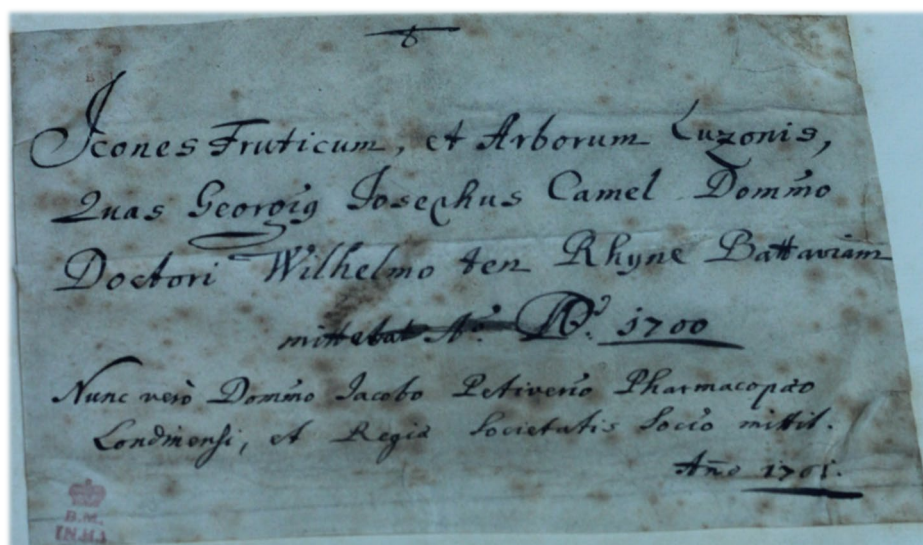 Icones Fruticum, et Arborum Luzonis,
Quas Georgig Josephus Camel Dommo
Doctori Wilhelmo ten Rhyne Battaviam
mittebat Aº. Dº. 1700
Nunc verò Dommo Jacobo Petiverio Pharmacopæo
Londinensi, et Regiæ Societatis Socio mittit.
Año 1701.
B.M.
[N.H.]